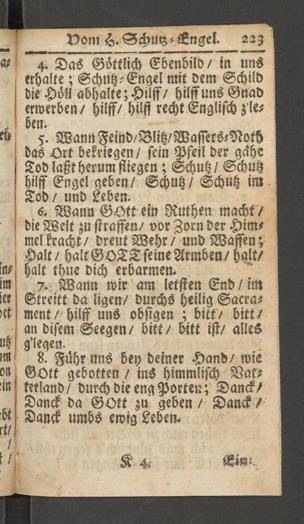 Vom H. Schutz-Engel. 223
4. Das Göttlich Ebenbild / in uns
erhalte ; Schutz-Engel mit dem Schild
die Höll abhalte; Hilff / hilff uns Gnad
erwerben / hilff / hilff recht Englisch z'le-
ben.
5. Wann Feind / Blitz / Wassers-Noth
das Ort bekriegen / sein Pfeil der gähe
Tod laßt herum fliegen ; Schutz / Schutz
hilff Engel geben / Schutz / Schutz im
Tod / und Leben.
6. Wann GOtt ein Ruthen macht /
die Welt zu straffen / vor Zorn der Him-
mel kracht / dreut Wehr / und Waffen ;
Halt / halt GOTT seine Armben / halt /
halt thue dich erbarmen.
7. Wann wir am letsten End / im
Streitt da ligen / durchs heilig Sacra-
ment / hilff uns obsigen ; bitt / bitt /
an disem Seegen / bitt / bitt ist / alles
g'legen.
8. Führ uns bey deiner Hand / wie
GOtt gebotten / ins himmlisch Vat-
terland / durch die eng Porten ; Danck /
Danck da GOtt zu geben / Danck /
Danck umbs ewig Leben.
K 4. Eim: